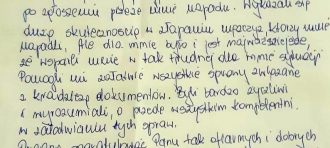 po zgłoszeniu przeze mnie napadu. Wykazali się
dużą skutecznością w złapaniu mężczyzn, którzy mnie
napadli. Ale dla mnie było i jest najważniejsze,
że wsparli mnie w tak trudnej dla mnie sytuacji
Pomogli mi załatwić wszystkie sprawy związane
z kradzieżą dokumentów. Byli bardzo życzliwi
i wyrozumiali, a przede wszystkim kompetentni
w załatwianiu tych spraw.
pogratulować Panu tak ofiarnych i dobrych